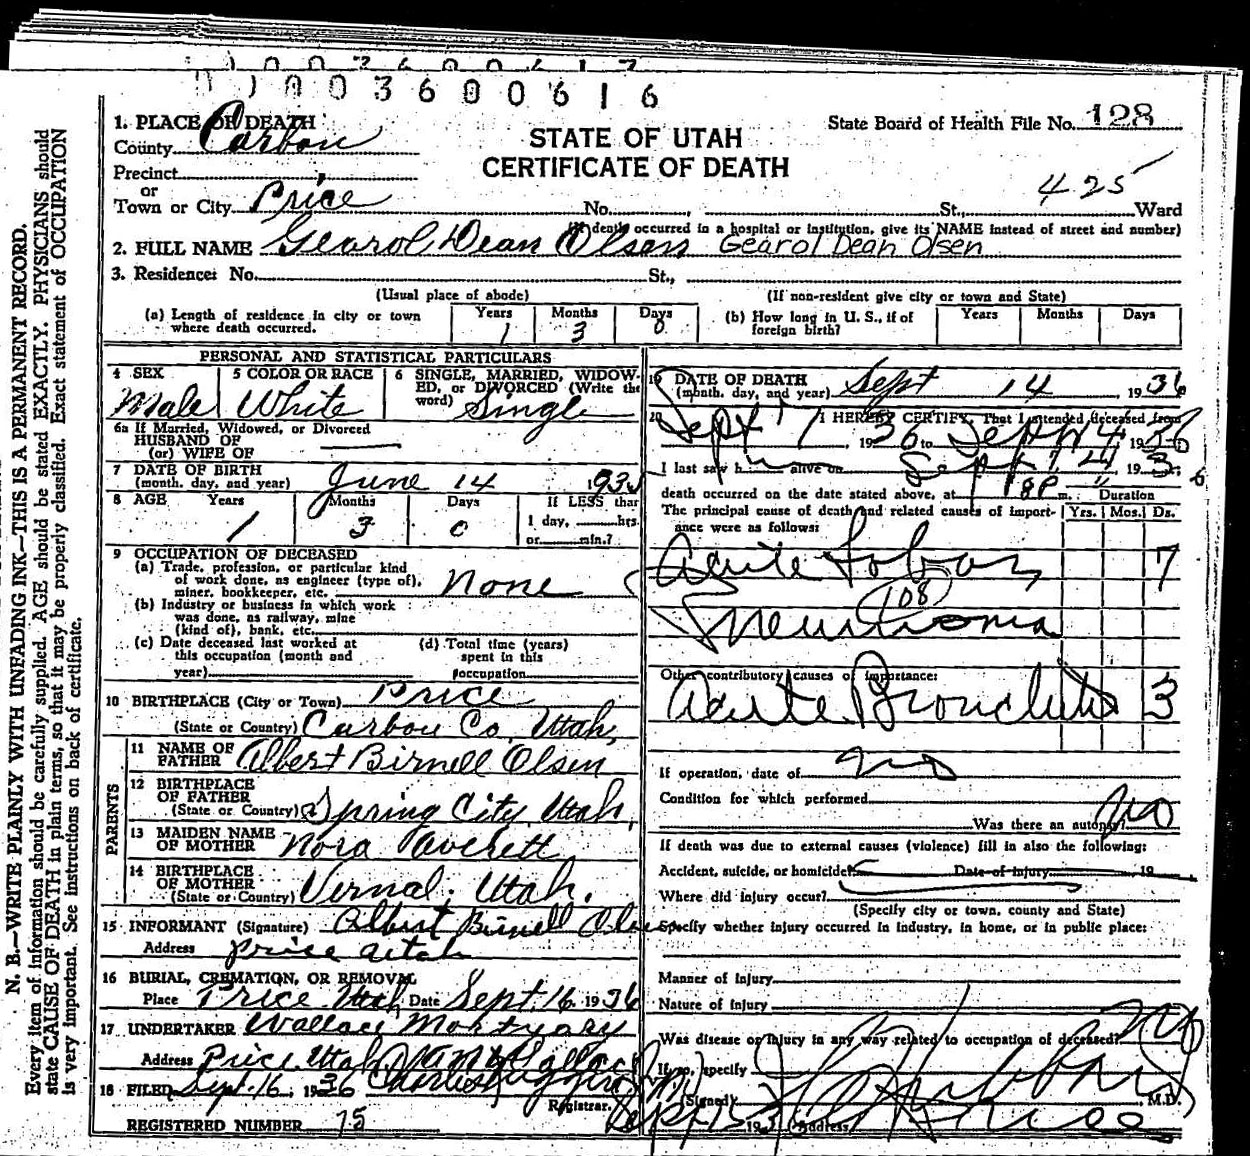 1 0 0 3 6 0 0 6 1 7
1 0 0 3 6 0 0 6 1 6
1. PLACE OF DEATH
County Carbon
Precinct
or
Town or City Price No. St., Ward
STATE OF UTAH
CERTIFICATE OF DEATH
State Board of Health File No. 128
425
(If death occurred in a hospital or institution, give its NAME instead of street and number)
2. FULL NAME Gearol Dean Olsen Gearol Dean Olsen
3. Residence: No. St.,
(Usual place of abode) (If non-resident give city or town and State)
(a) Length of residence in city or town where death occurred. Years 1 Months 3 Days 0
(b) How long in U. S., if of foreign birth? Years Months Days
PERSONAL AND STATISTICAL PARTICULARS
4 SEX Male
5 COLOR OR RACE White
6 SINGLE, MARRIED, WIDOWED, or DIVORCED (Write the word) Single
6a If Married, Widowed, or Divorced
HUSBAND OF
(or) WIFE OF
7 DATE OF BIRTH
(month, day, and year) June 14 1935
8 AGE Years 1 Months 3 Days 0 If LESS than
1 day, hrs.
or min.?
9 OCCUPATION OF DECEASED
(a) Trade, profession, or particular kind
of work done, as engineer (type of),
miner, bookkeeper, etc. None
(b) Industry or business in which work
was done, as railway, mine
(kind of), bank, etc.
(c) Date deceased last worked at
this occupation (month and
year)
(d) Total time (years)
spent in this
occupation
10 BIRTHPLACE (City or Town) Price
(State or Country) Carbon Co, Utah,
PARENTS
11 NAME OF
FATHER Albert Birnell Olsen
12 BIRTHPLACE
OF FATHER
(State or Country) Spring City, Utah,
13 MAIDEN NAME
OF MOTHER Nora Averett
14 BIRTHPLACE
OF MOTHER
(State or Country) Vernal, Utah.
15 INFORMANT (Signature) Albert Birnell Olsen
Address Price Utah
16 BURIAL, CREMATION, OR REMOVAL
Place Price Utah Date Sept. 16 1936
17 UNDERTAKER Wallace Mortuary
Address Price Utah
18 FILED Sept. 16, 1936
Registrar.
REGISTERED NUMBER 75
19 DATE OF DEATH
(month, day, and year) Sept 14 1936
20 I HEREBY CERTIFY, That I attended deceased from
Sept 7, 1936 to Sept 14 1936
I last saw h alive on Sept 14 1936
death occurred on the date stated above, at m. Duration
The principal cause of death and related causes of importance were as follows: Yrs. Mos. Ds.
Acute Lobar 7
108
Pneumonia
Other contributory causes of importance:
Acute Bronchitis 3
If operation, date of no
Condition for which performed
Was there an autopsy? No
If death was due to external causes (violence) fill in also the following:
Accident, suicide, or homicide? Date of injury 19
Where did injury occur?
(Specify city or town, county and State)
Specify whether injury occurred in industry, in home, or in public place:
Manner of injury
Nature of injury
Was disease or injury in any way related to occupation of deceased? No
If so, specify
(Signed) M.D.
Sept 15 1936 (Address) Price
N. B.—WRITE PLAINLY WITH UNFADING INK—THIS IS A PERMANENT RECORD.
Every item of information should be carefully supplied. AGE should be stated EXACTLY. PHYSICIANS should
state CAUSE OF DEATH in plain terms, so that it may be properly classified. Exact statement of OCCUPATION
is very important. See instructions on back of certificate.